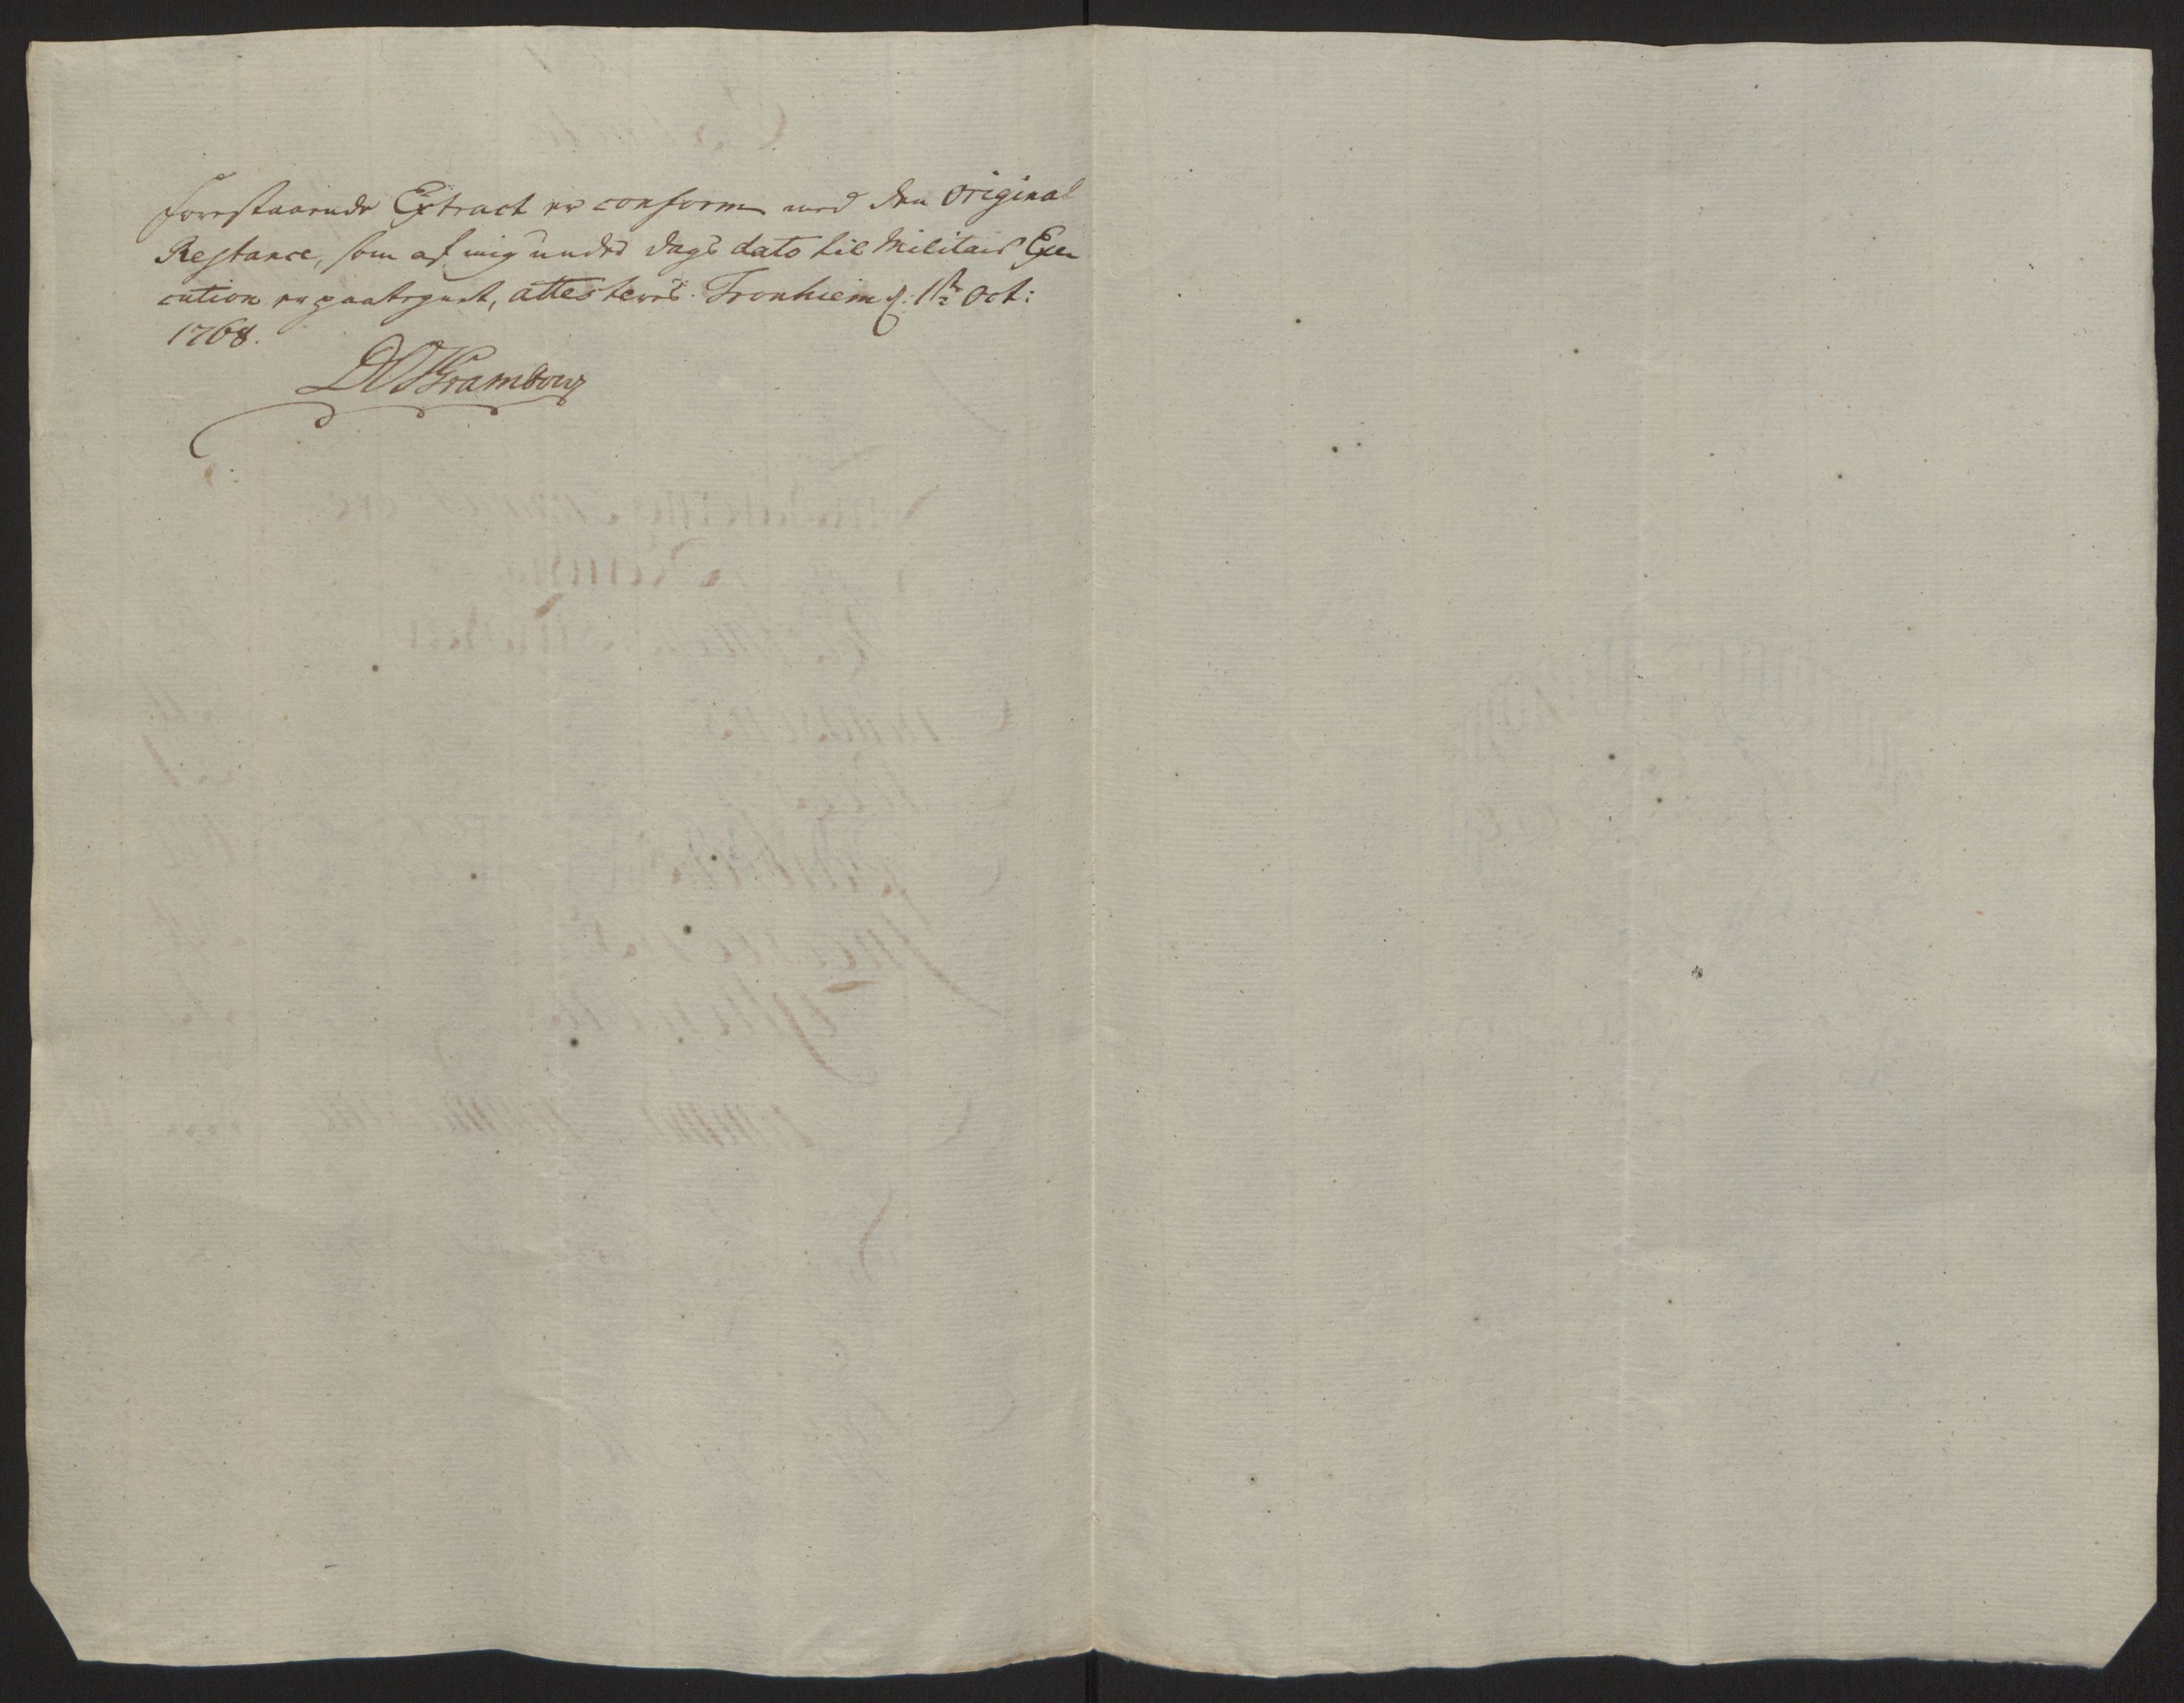 Forestaaende Extract er conform med den Original
Restance, som af mig under dags dato til Militair Exe
cution er paategnet, attesteres. Tronhiem d: 1ste Oct:
1768.